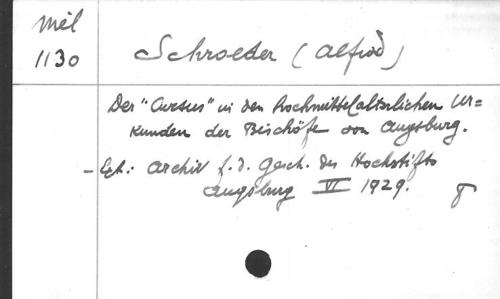 Mél
1130
Schroeder (Alfred)
Der "Cursus" in den hochmittelalterlichen Ur=
kunden der Bischöfe von Augsburg.
- Ext.: Archiv f. d. Gesch. des Hochstifts
Augsburg VI 1929. 8